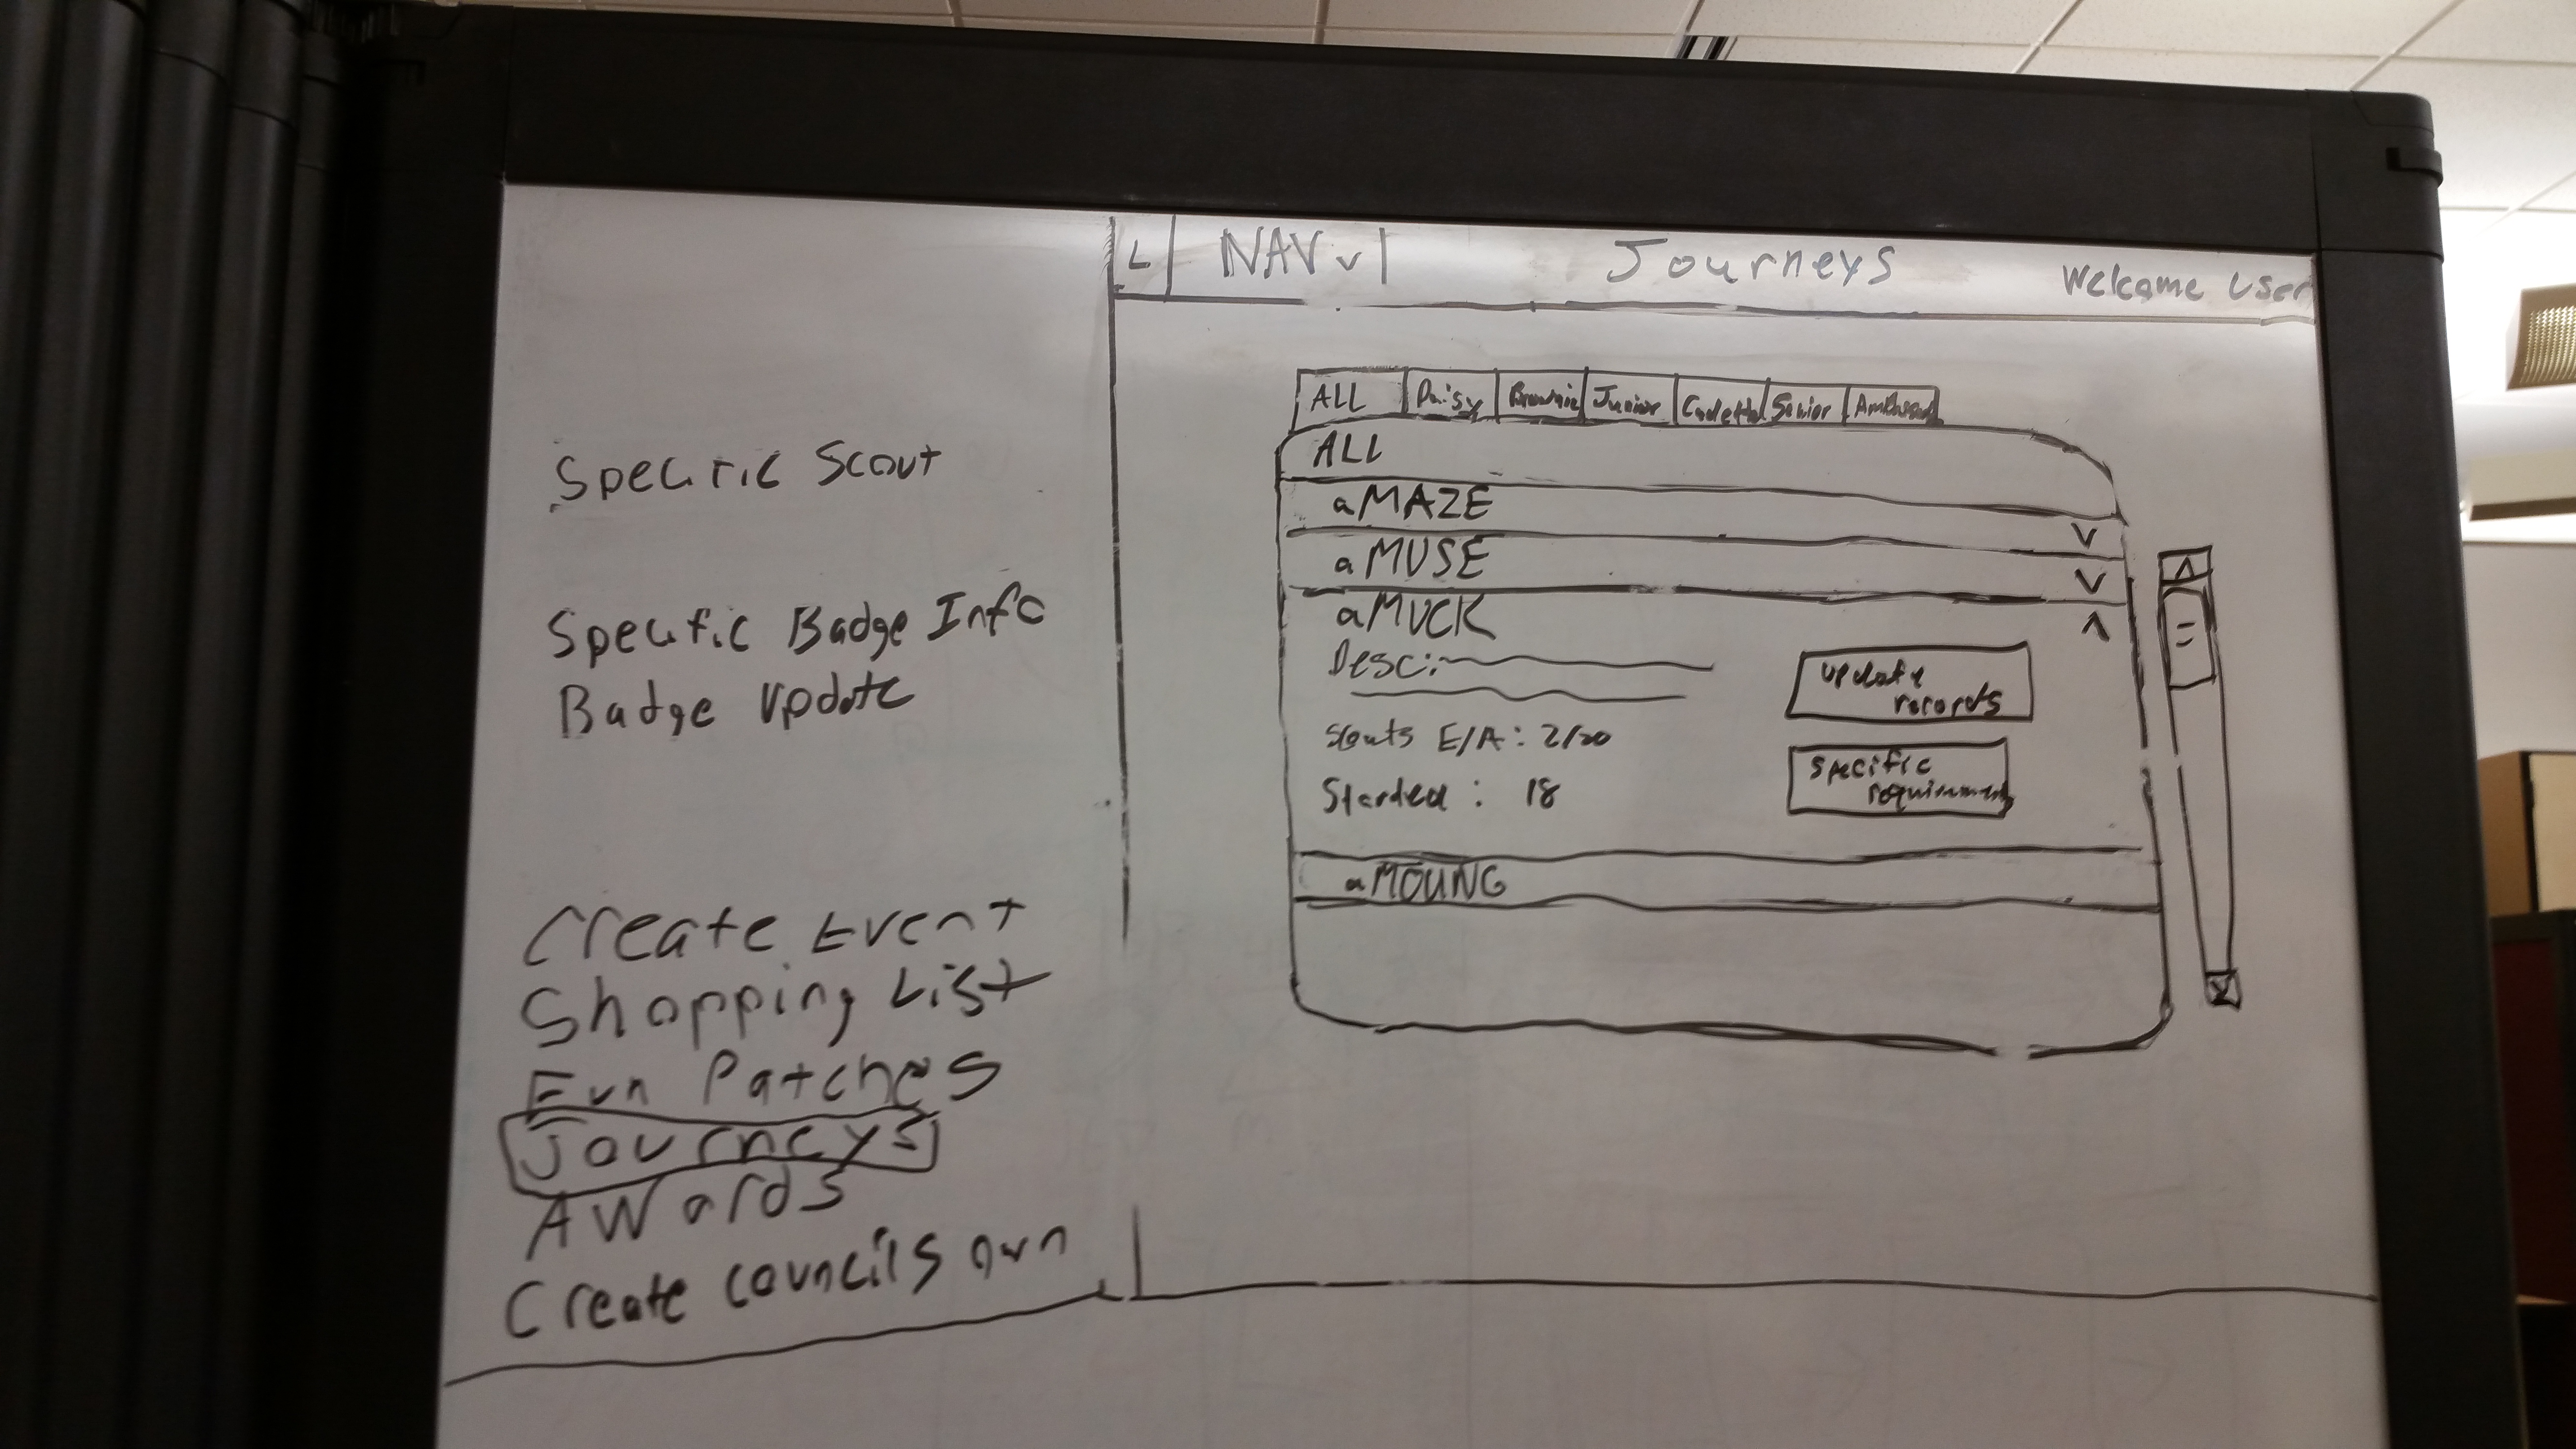 L NAV v Journeys Welcome User
ALL Daisy Brownie Junior Cadette Senior
ALL
aMAZE
V
aMUSE
V
aMUCK
Desc:
update
records
Scouts E/A: 2/20
specific
Started : 18
aMOUNG
Specific Scout
Specific Badge Info
Badge Update
Create Event
Shopping List
Fun Patches
Journeys
AWards
Create councils own